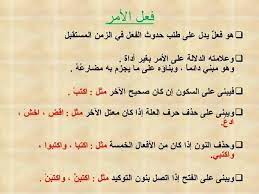 فعل الأمر
❑هو فعلٌ يدل على طلب حدوث الفعل في الزمن المستقبل
❑وعلامته الدلالة على الأمر بغير أداة .
وهو مبني دائماً ، وبناؤه على ما يجزم به مضارعُهُ .
❑فيبنى على السكون إن كان صحيح الآخر مثل : اكتبْ .
❑ويبنى على حذف حرف العلة إذا كان معتل الآخر مثل : اقض ، اخش ،
ادع .
❑وحذف النون إذا كان من الأفعال الخمسة مثل : اكتبا ، واكتبوا ،
واكتبي.
❑ويبنى على الفتح إذا اتصل بنون التوكيد مثل : اكتبنْ ، واكتبنّ .